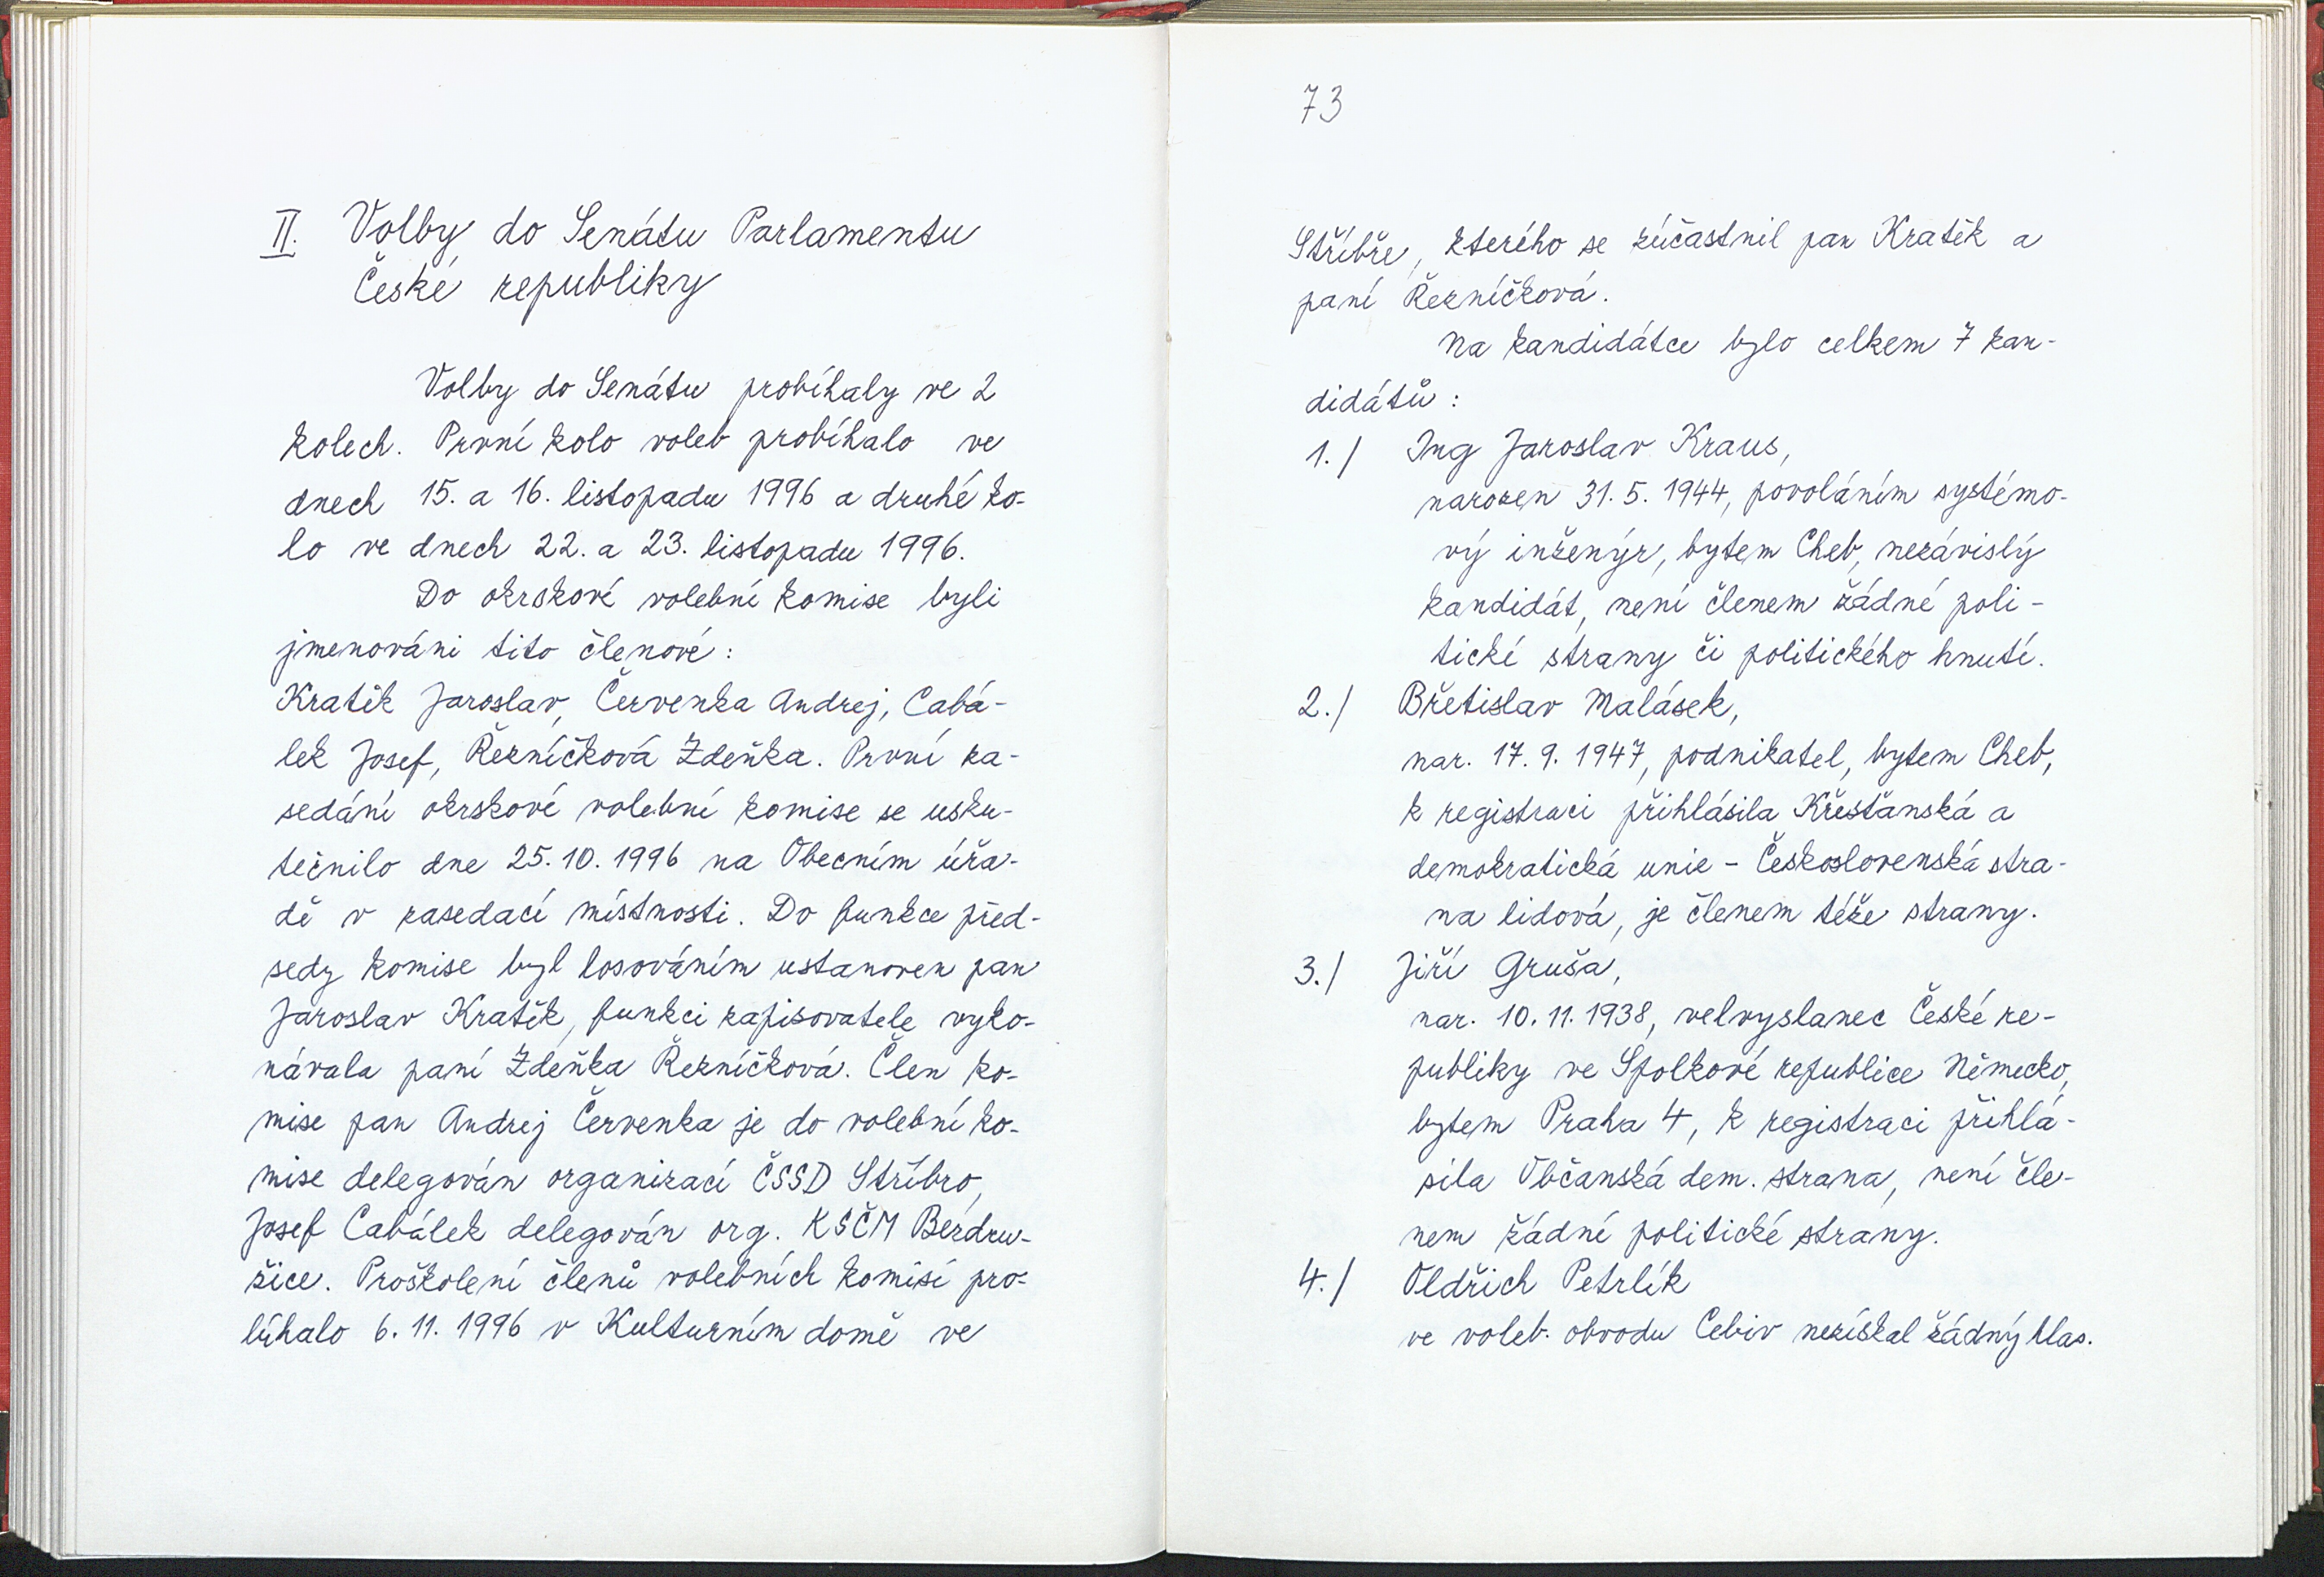 II. Volby do Senátu Parlamentu
České republiky
Volby do Senátu probíhaly ve 2
kolech. První kolo voleb probíhalo ve
dnech 15. a 16. listopadu 1996 a druhé ko-
lo ve dnech 22. a 23. listopadu 1996.
Do okrskové volební komise byli
jmenováni tito členové:
Kratěk Jaroslav, Červenka Andrej, Cabá-
lek Josef, Řezníčková Zdeňka. První za-
sedání okrskové volební komise se usku-
tečnilo dne 25.10.1996 na Obecním úřa-
dě v zasedací místnosti. Do funkce před-
sedy komise byl losováním ustanoven pan
Jaroslav Kratěk, funkci zapisovatele vyko-
návala paní Zdeňka Řezníčková. Člen ko-
mise pan Andrej Červenka je do volební ko-
mise delegován organizací ČSSD Stříbro,
Josef Cabálek delegován org. KSČM Bezdru-
žice. Proškolení členů volebních komisí pro-
bíhalo 6.11.1996 v Kulturním domě ve
73
Stříbře, kterého se zúčastnil pan Kratěk a
paní Řezníčková.
Na kandidátce bylo celkem 7 kan-
didátů:
1./ Ing Jaroslav Kraus,
narozen 31.5.1944, povoláním systémo-
vý inženýr, bytem Cheb, nezávislý
kandidát, není členem žádné poli-
tické strany či politického hnutí.
2./ Břetislav Malásek,
nar. 17.9.1947, podnikatel, bytem Cheb,
k registraci přihlásila Křesťanská a
demokratická unie - Československá stra-
na lidová, je členem téže strany.
3./ Jiří Gruša,
nar. 10.11.1938, velvyslanec České re-
publiky ve Spolkové republice Německo,
bytem Praha 4, k registraci přihlá-
sila Občanská dem. strana, není čle-
nem žádné politické strany.
4./ Oldřich Petrlík
ve voleb. obvodu Cebiv nezískal žádný hlas.